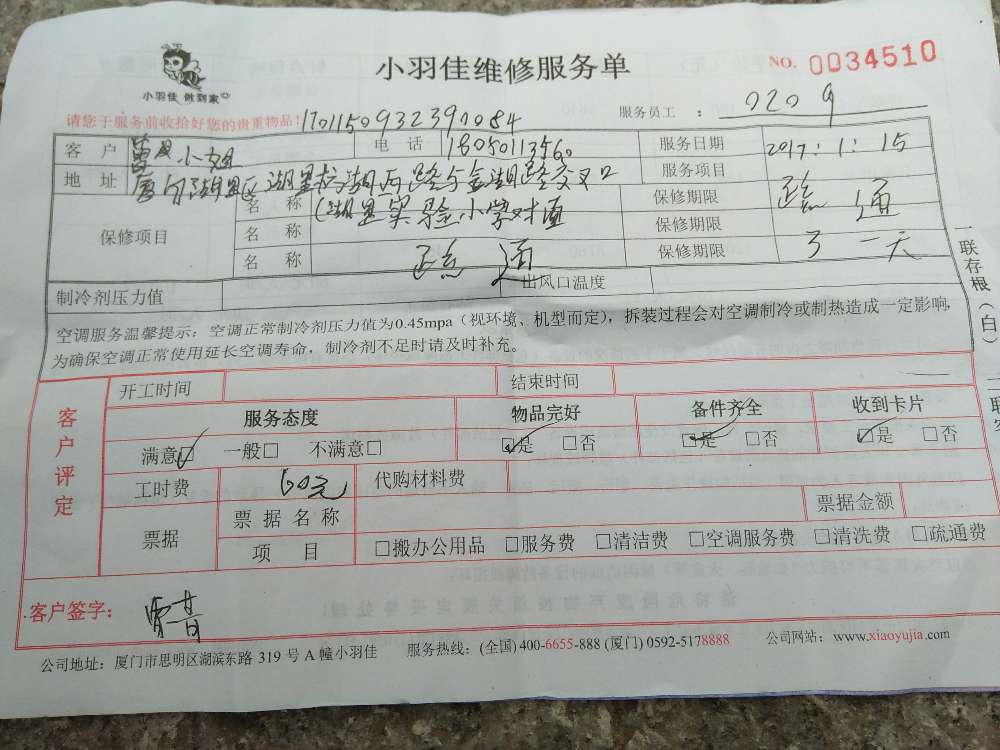 小羽佳 做到家
小羽佳维修服务单
NO. 0034510
请您于服务前收拾好您的贵重物品!
1701150932390084
服务员工 : 0209
客 户 小姐 电 话 18050113560 服务日期 2017.1.15
地 址 湖里区 湖里村湖 路与金湖路交叉口 服务项目
保修项目
名 称 (湖里实验小学对面 保修期限 疏通
名 称 保修期限
名 称 疏通 保修期限 一天
制冷剂压力值 出风口温度
空调服务温馨提示: 空调正常制冷剂压力值为0.45mpa(视环境、机型而定),拆装过程会对空调制冷或制热造成一定影响,
为确保空调正常使用延长空调寿命,制冷剂不足时请及时补充。
一联存根(白)
客户评定
开工时间 结束时间
服务态度 物品完好 备件齐全 收到卡片
满意☑ 一般□ 不满意□ ☑是 □否 ☑是 □否 ☑是 □否
工时费 60元 代购材料费
票据 票 据 名 称 票据金额
项 目 □搬办公用品 □服务费 □清洁费 □空调服务费 □清洗费 □疏通费
客户签字:
公司地址: 厦门市思明区湖滨东路 319 号 A 幢小羽佳 服务热线: (全国) 400-6655-888 (厦门) 0592-5178888 公司网站: www.xiaoyujia.com